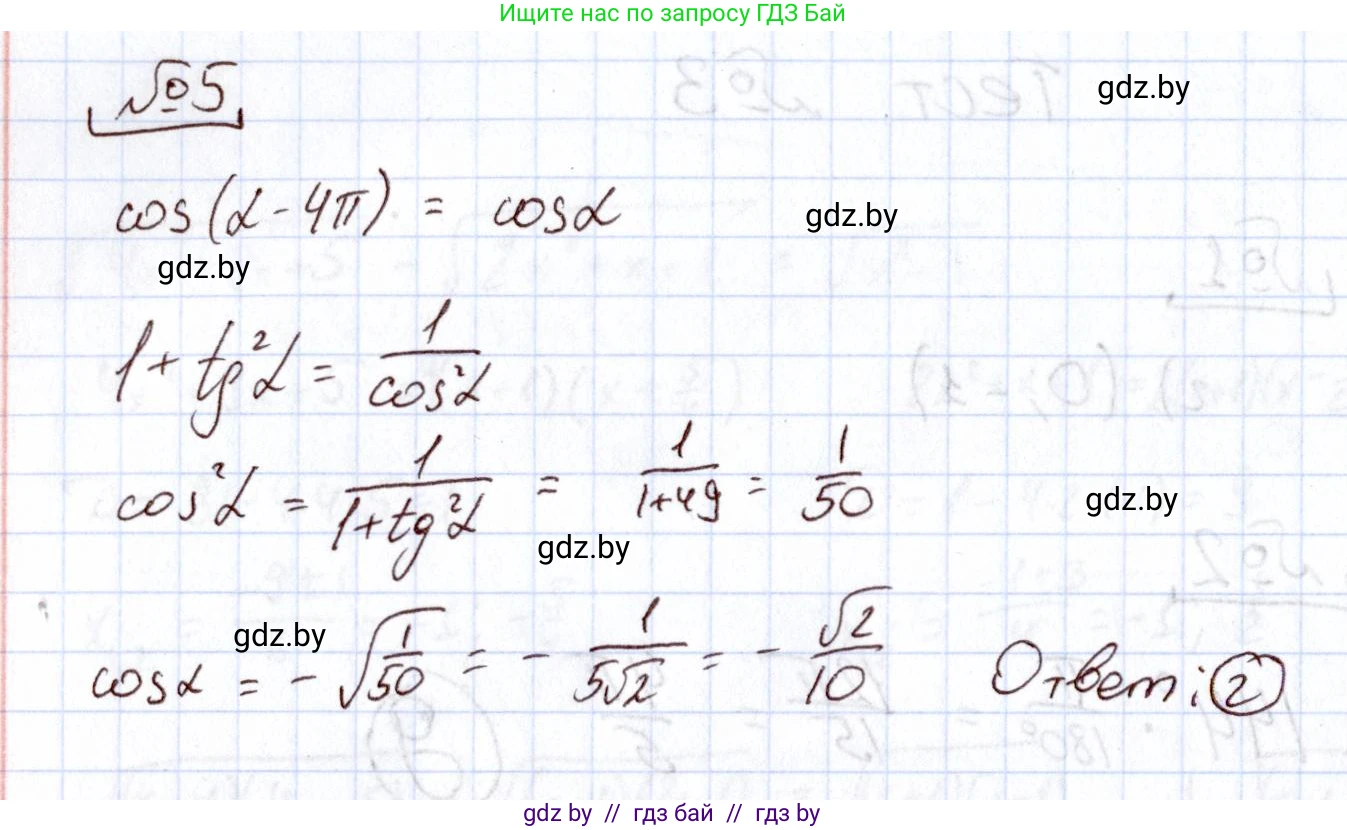 Ищите нас по запросу ГДЗ Бай
№5
gdz.by
cos(α - 4π) = cosα
gdz.by
gdz.by
1 + tg²α = 1/cos²α
cos²α = 1/(1+tg²α) = 1/(1+49) = 1/50
gdz.by
gdz.by
gdz.by
cosα = - √(1/50) = - 1/(5√2) = - √2/10 Ответ: 2
gdz.by // гдз бай // гдз by